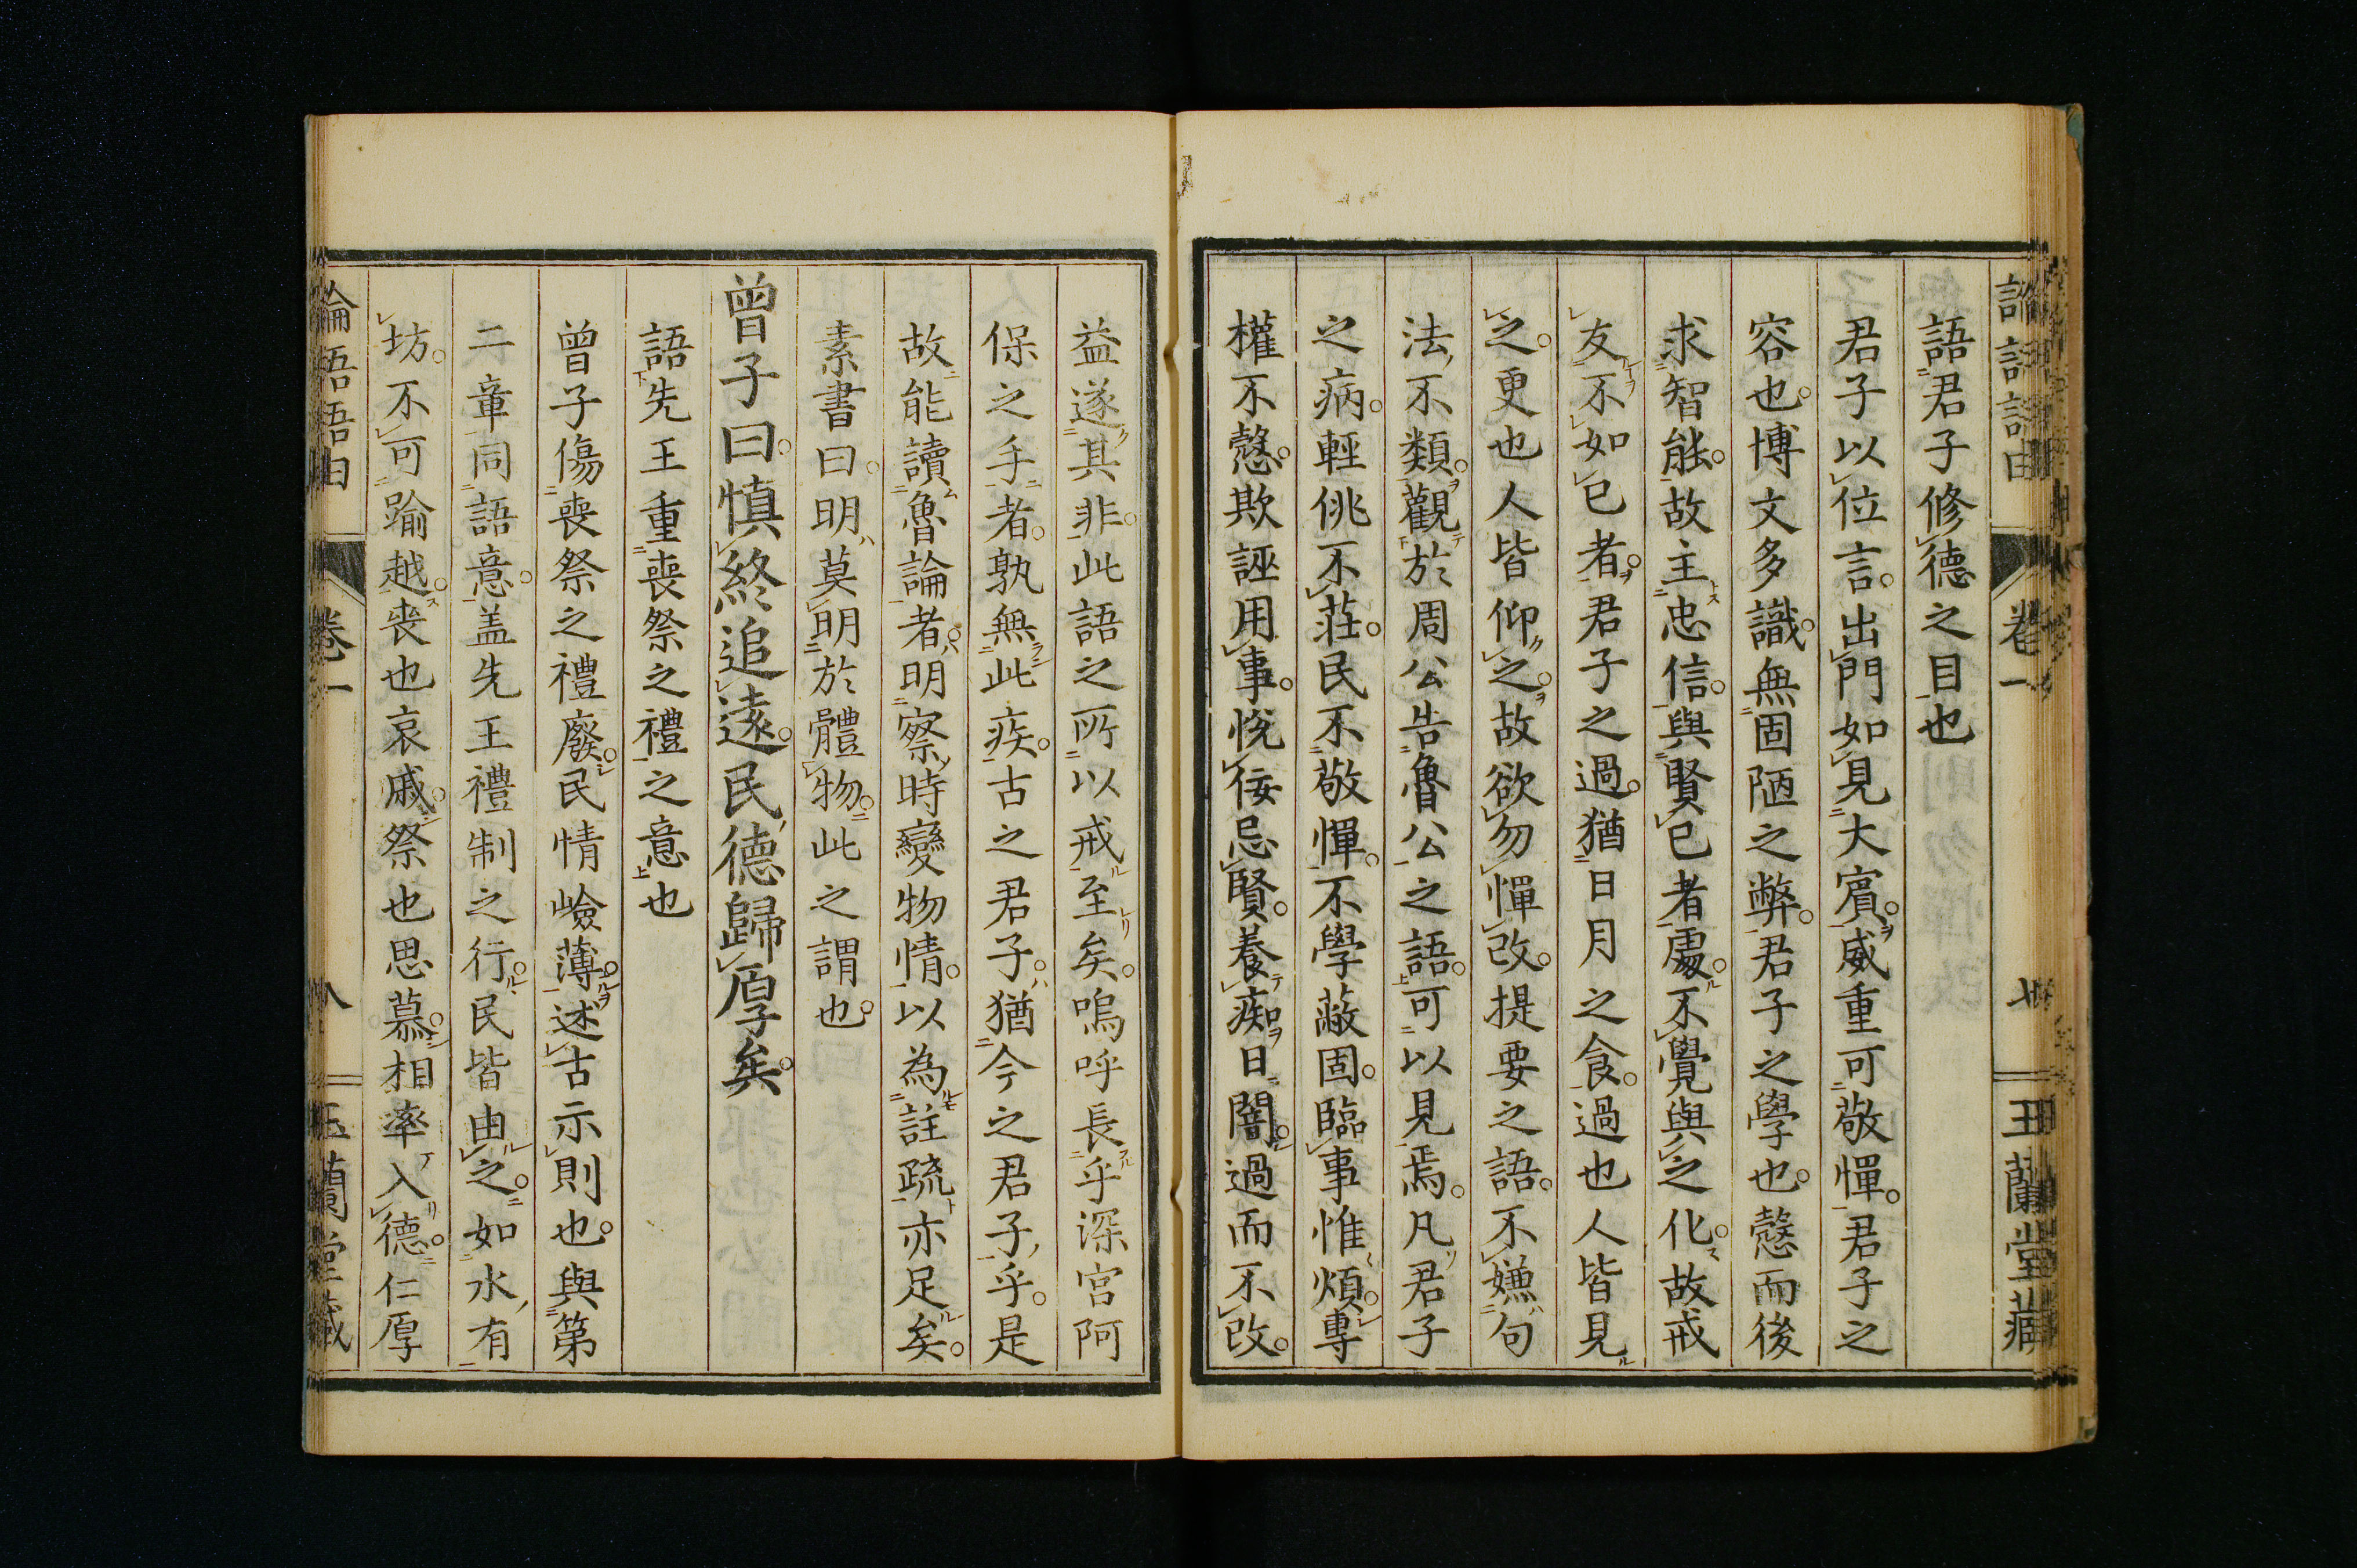 語君子修德之目也
君子以位言。出門如見大賓。威重可敬憚。君子之
容也。博文多識。無固陋之弊。君子之學也。愨而後
求智能。故主忠信。與賢已者處。不覺與之化。故戒
友不如已者。君子之過。猶日月之食。過也人皆見
之。更也人皆仰之。故欲勿憚改。提要之語。不嫌句
法不類。觀於周公告魯公之語。可以見焉。凡君子
之病。輕佻不莊。民不敬憚。不學蔽固。臨事惟煩。專
權不愨。欺誣用事。悅佞忌賢。養痴日闇。過而不改。
益遂其非。此語之所以戒至矣。嗚呼長乎深宮阿
保之手者。孰無此疾。古之君子。猶今之君子乎。是
故能讀魯論者。明察時變物情。以為註疏亦足矣。
素書曰。明莫明於體物。此之謂也。
曾子曰。慎終追遠。民德歸厚矣。
語先王重喪祭之禮之意也
曾子傷喪祭之禮廢。民情嶮薄。述古示則也。與第
二章同語意。盖先王禮制之行。民皆由之。如水有
坊。不可踰越。喪也哀戚。祭也思慕。相率入德。仁厚
論語語由 卷一 八 玉蘭堂藏